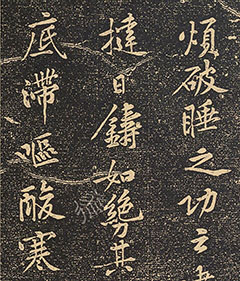 煩破睡之功云
撻日鑄如絶其
底滯嘔酸寒